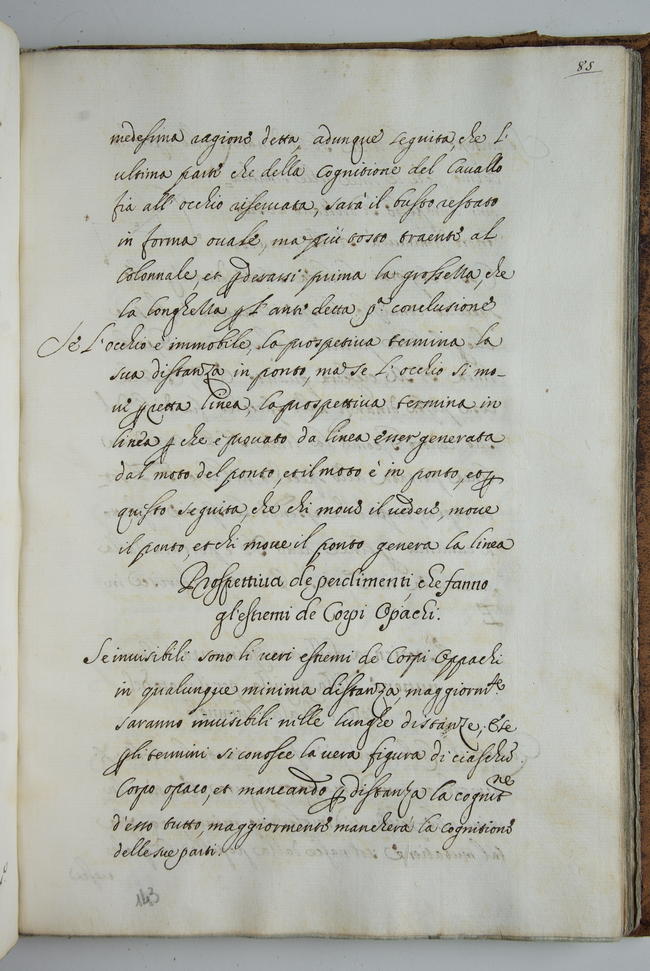 85
medesima ragione detta, adunque seguita, che l'
ultima parte che della cognitione del Cavallo
fia all' occhio riservata, sarà il busto restato
in forma ovale, ma più tosto traente al
Colonnale, et p desarsi prima la grossella, che
la longhella p l' ante detta pa conclusione
Se L'occhio è immobile, la prospetiva termina la
sua distanza in ponto, ma se l' occhio si mo-
ve p retta linea, la prospettiva termina in
linea p che è provato da linea esser generata
dal moto del ponto, et il moto è in ponto, et p
questo seguita, che chi move il vedere, move
il ponto, et chi move il ponto genera la linea
Prospettiva de perdimenti, che fanno
gl'estremi de Corpi Opachi.
Se invisibili sono li veri estremi de Corpi Oppachi
in qualunque minima distanza, maggiormte
saranno invisibili nelle lunghe distanze, Ese
p li termini si conosce la vera figura di ciaschun
Corpo opaco, et mancando p distanza la cognitne
d'esso tutto, maggiormente mancherà la cognitione
delle sue parti.
143